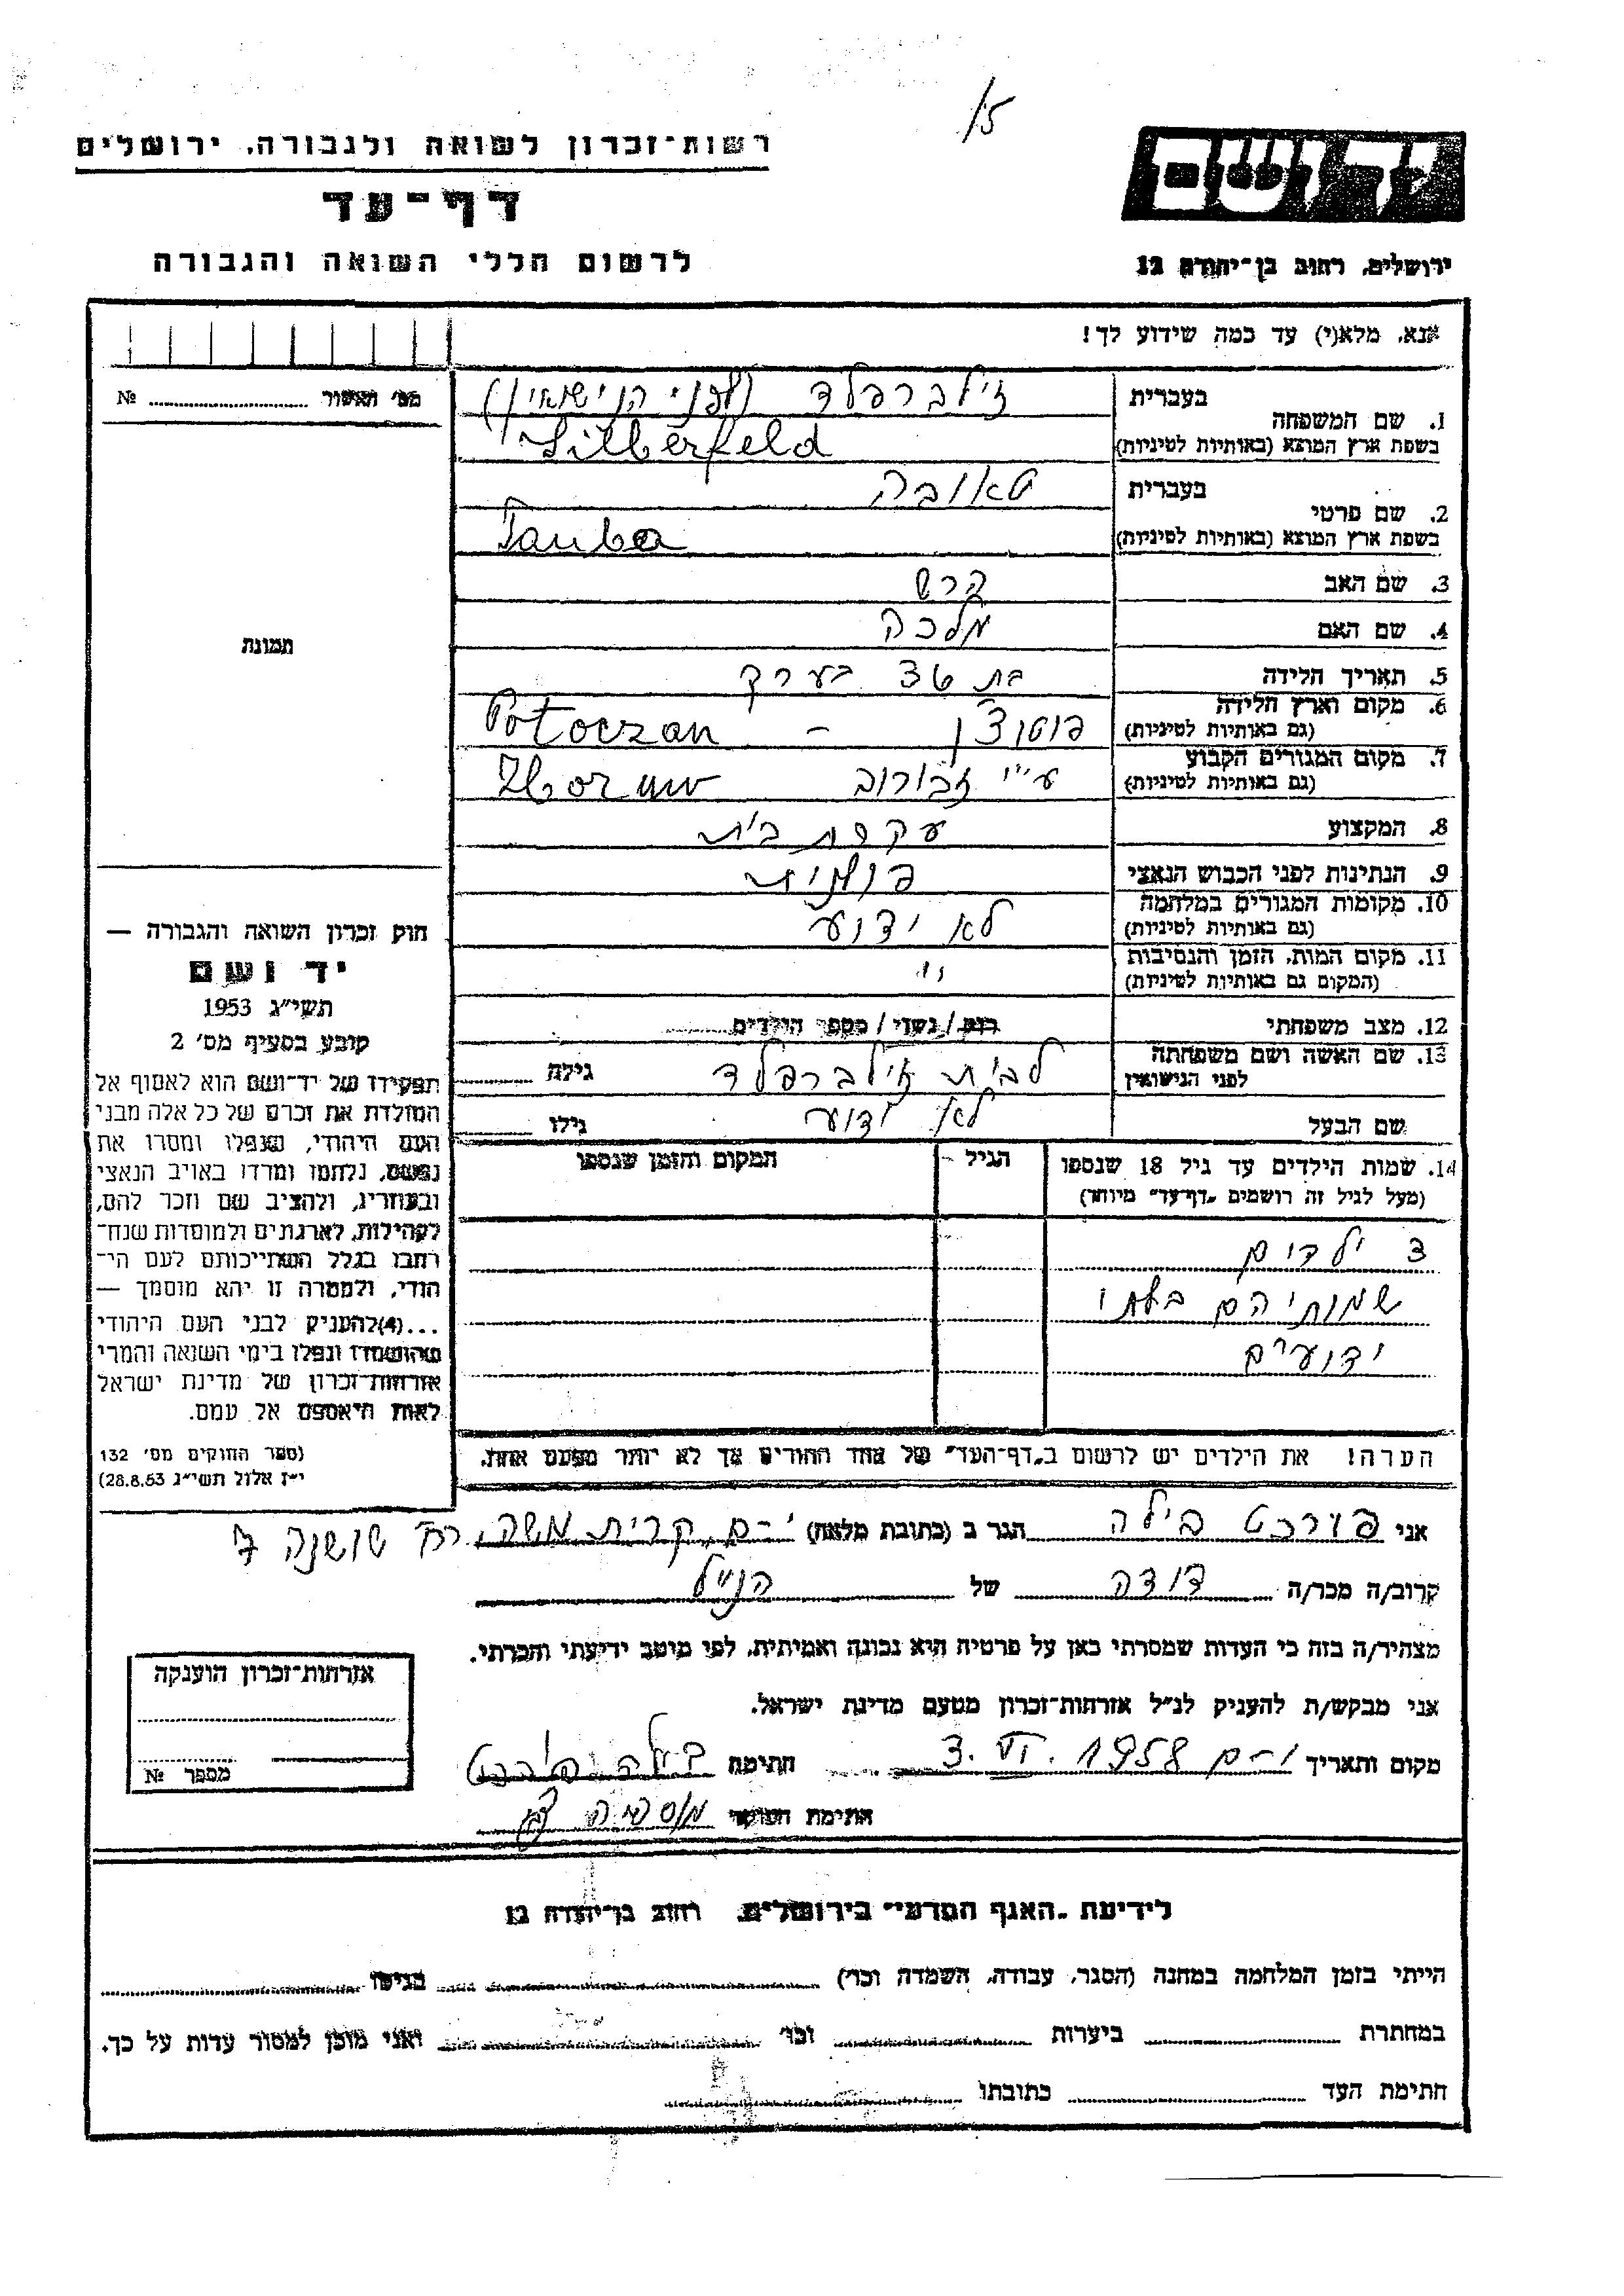 15
ידושם
רשות־זכרון לשואה ולגבורה, ירושלים
דף־עד
לרשום חללי השואה והגבורה
ירושלים, רחוב בן־יהודה 12
אנא, מלא(י) עד כמה שידוע לך!
מס׳ תאשור № 
1. שם המשפחה
בעברית זילברפלד (לפני הנישואין)
בשפת ארץ המוצא (באותיות לטיניות) Silberfeld
2. שם פרטי
בעברית טאובה
בשפת ארץ המוצא (באותיות לטיניות) Tauba
3. שם האב הרש
4. שם האם מלכה
תמונה
5. תאריך הלידה בת 36 בערך
6. מקום וארץ הלידה פוטוצ'ן - Potoczan
(גם באותיות לטיניות)
7. מקום המגורים הקבוע ע"י זבורוב Zborow
(גם באותיות לטיניות)
8. המקצוע עקרת בית
9. הנתינות לפני הכבוש הנאצי פולנית
10. מקומות המגורים במלחמה לא ידוע
(גם באותיות לטיניות)
11. מקום המות, הזמן והנסיבות "
(המקום גם באותיות לטיניות)
12. מצב משפחתי רוק/נשוי/מספר הילדים
13. שם האשה ושם משפחתה לבית זילברפלד גילה
לפני הנישואין
שם הבעל לא ידוע גילו
14. שמות הילדים עד גיל 18 שנספו הגיל המקום והזמן שנספו
(מעל לגיל זה רושמים „דף־עד" מיוחד)
3 ילדים
שמותיהם בלתי
ידועים
הערה! את הילדים יש לרשום ב„דף־העד" של אחד ההורים אך לא יותר מפעם אחת.
חוק זכרון השואה והגבורה —
יד ושם
תשי״ג 1953
קובע בסעיף מס׳ 2
תפקידו של יד־ושם הוא לאסוף אל
המולדת את זכרם של כל אלה מבני
העם היהודי, שנפלו ומסרו את
נפשם, נלחמו ומרדו באויב הנאצי
ובעוזריו, ולהציב שם וזכר להם,
לקהילות, לארגונים ולמוסדות שנח־
רבו בגלל השתייכותם לעם הי־
הודי, ולמטרה זו יהא מוסמך —
...(4)להעניק לבני העם היהודי
שהושמדו ונפלו בימי השואה והמרי
אזרחות־זכרון של מדינת ישראל
לאות היאספם אל עמם.
(ספר החוקים מס׳ 132
י״ז אלול תשי״ג 28.8.53)
אני פורכט בילה הגר ב (כתובת מלאה) י-ם, קרית משה, רח' שושנה 7
קרוב/ה מכר/ה דודה של הנ"ל
מצהיר/ה בזה כי העדות שמסרתי כאן על פרטיה היא נכונה ואמיתית, לפי מיטב ידיעתי והכרתי.
אני מבקש/ת להעניק לנ״ל אזרחות־זכרון מטעם מדינת ישראל.
מקום ותאריך י-ם 3. VI. 1958 חתימה בילה פורכט
חתימת הפוקד
אזרחות־זכרון הוענקה
מספר №
לידיעת „האגף המדעי" בירושלים, רחוב בן־יהודה 12
הייתי בזמן המלחמה במחנה (הסגר, עבודה, השמדה וכו׳) בגיטו
במחתרת ביערות וכו׳ ואני מוכן למסור עדות על כך.
חתימת העד כתובתו